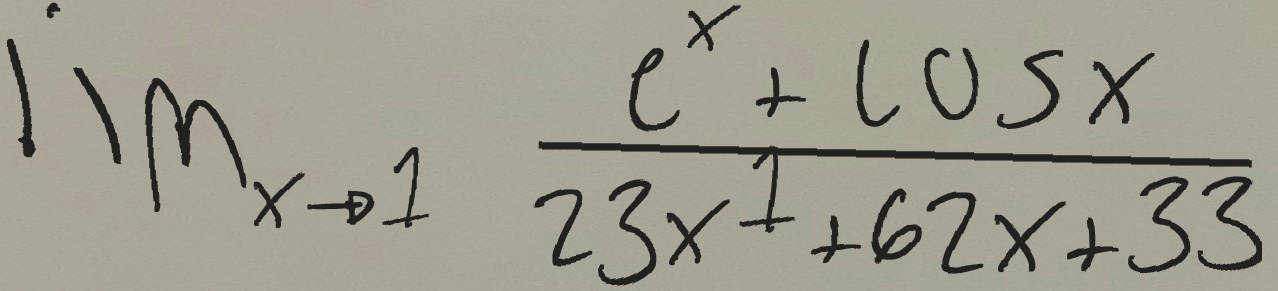 lim_{x→1} \frac{e^x + cos x}{23x^1 + 62x + 33}